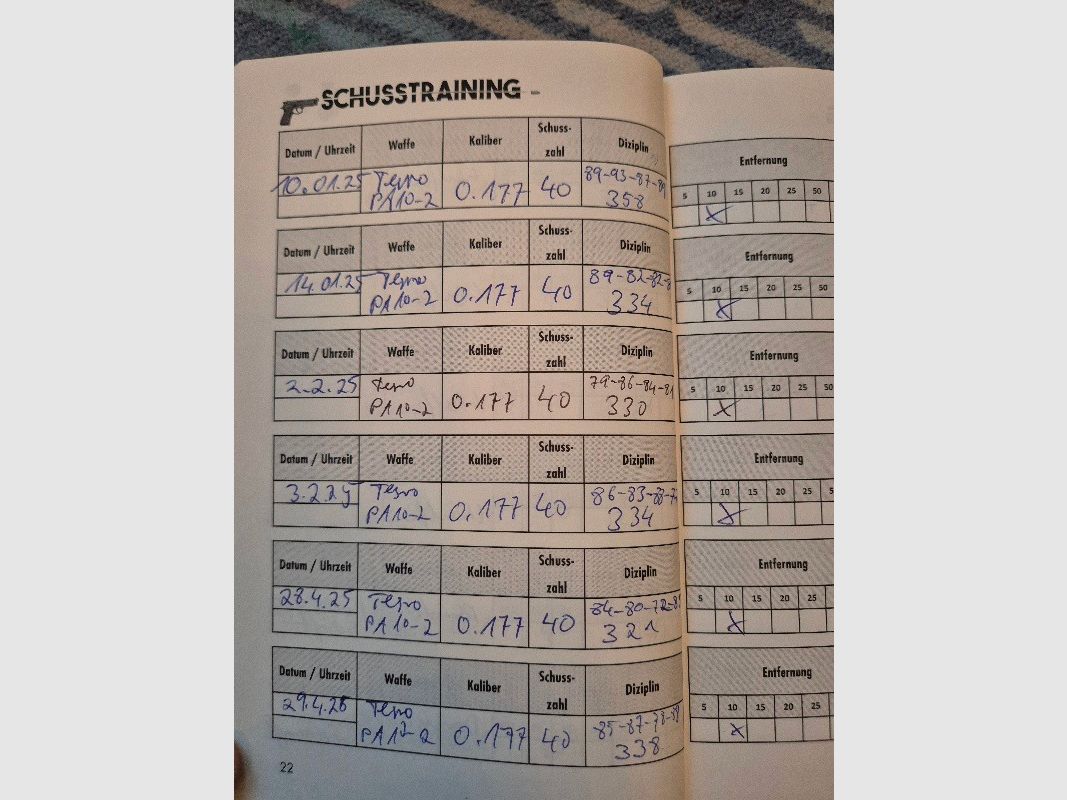 SCHUSSTRAINING
Datum / Uhrzeit Waffe Kaliber Schuss-zahl Diziplin Entfernung
5 10 15 20 25 50
10.01.25 Tesro PA10-2 0.177 40 89-93-87-89 358 x
Datum / Uhrzeit Waffe Kaliber Schuss-zahl Diziplin Entfernung
5 10 15 20 25 50
14.01.25 Tesro PA10-2 0.177 40 89-82-82- 334 x
Datum / Uhrzeit Waffe Kaliber Schuss-zahl Diziplin Entfernung
5 10 15 20 25 50
2.2.25 Tesro PA10-2 0.177 40 79-86-84-81 330 x
Datum / Uhrzeit Waffe Kaliber Schuss-zahl Diziplin Entfernung
5 10 15 20 25
3.2.25 Tesro PA10-2 0.177 40 86-83- 334 x
Datum / Uhrzeit Waffe Kaliber Schuss-zahl Diziplin Entfernung
5 10 15 20 25
28.4.25 Tesro PA10-2 0.177 40 84-80-72- 321 x
Datum / Uhrzeit Waffe Kaliber Schuss-zahl Diziplin Entfernung
5 10 15 20 25
29.4.25 Tesro 0.177 40 85-87- 338 x
22